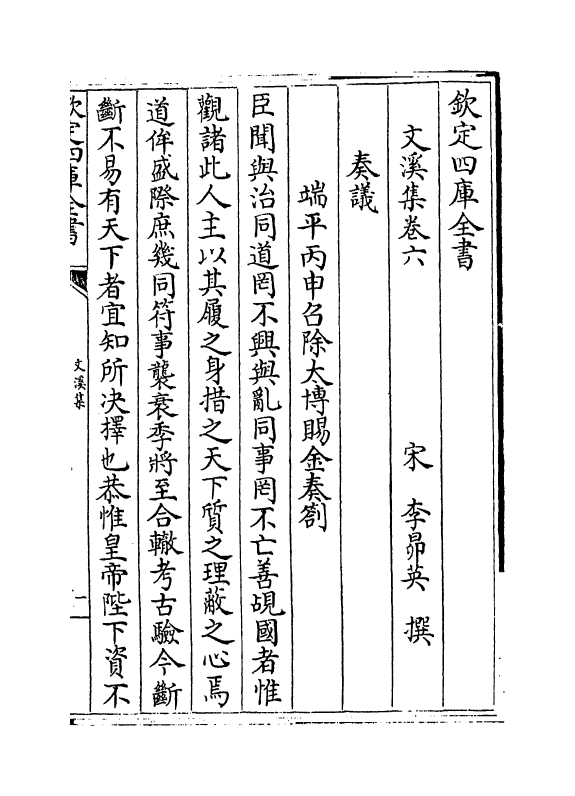 欽定四庫全書
文溪集卷六
宋 李昴英 撰
奏議
端平丙申召除太博賜金奏劄
臣聞與治同道罔不興與亂同事罔不亡善覘國者惟
觀諸此人主以其履之身措之天下質之理蔽之心焉
道侔盛際庶幾同符事襲衰季將至合轍考古驗今斷
斷不易有天下者宜知所决擇也恭惟皇帝陛下資不
欽定四庫全書
文溪集